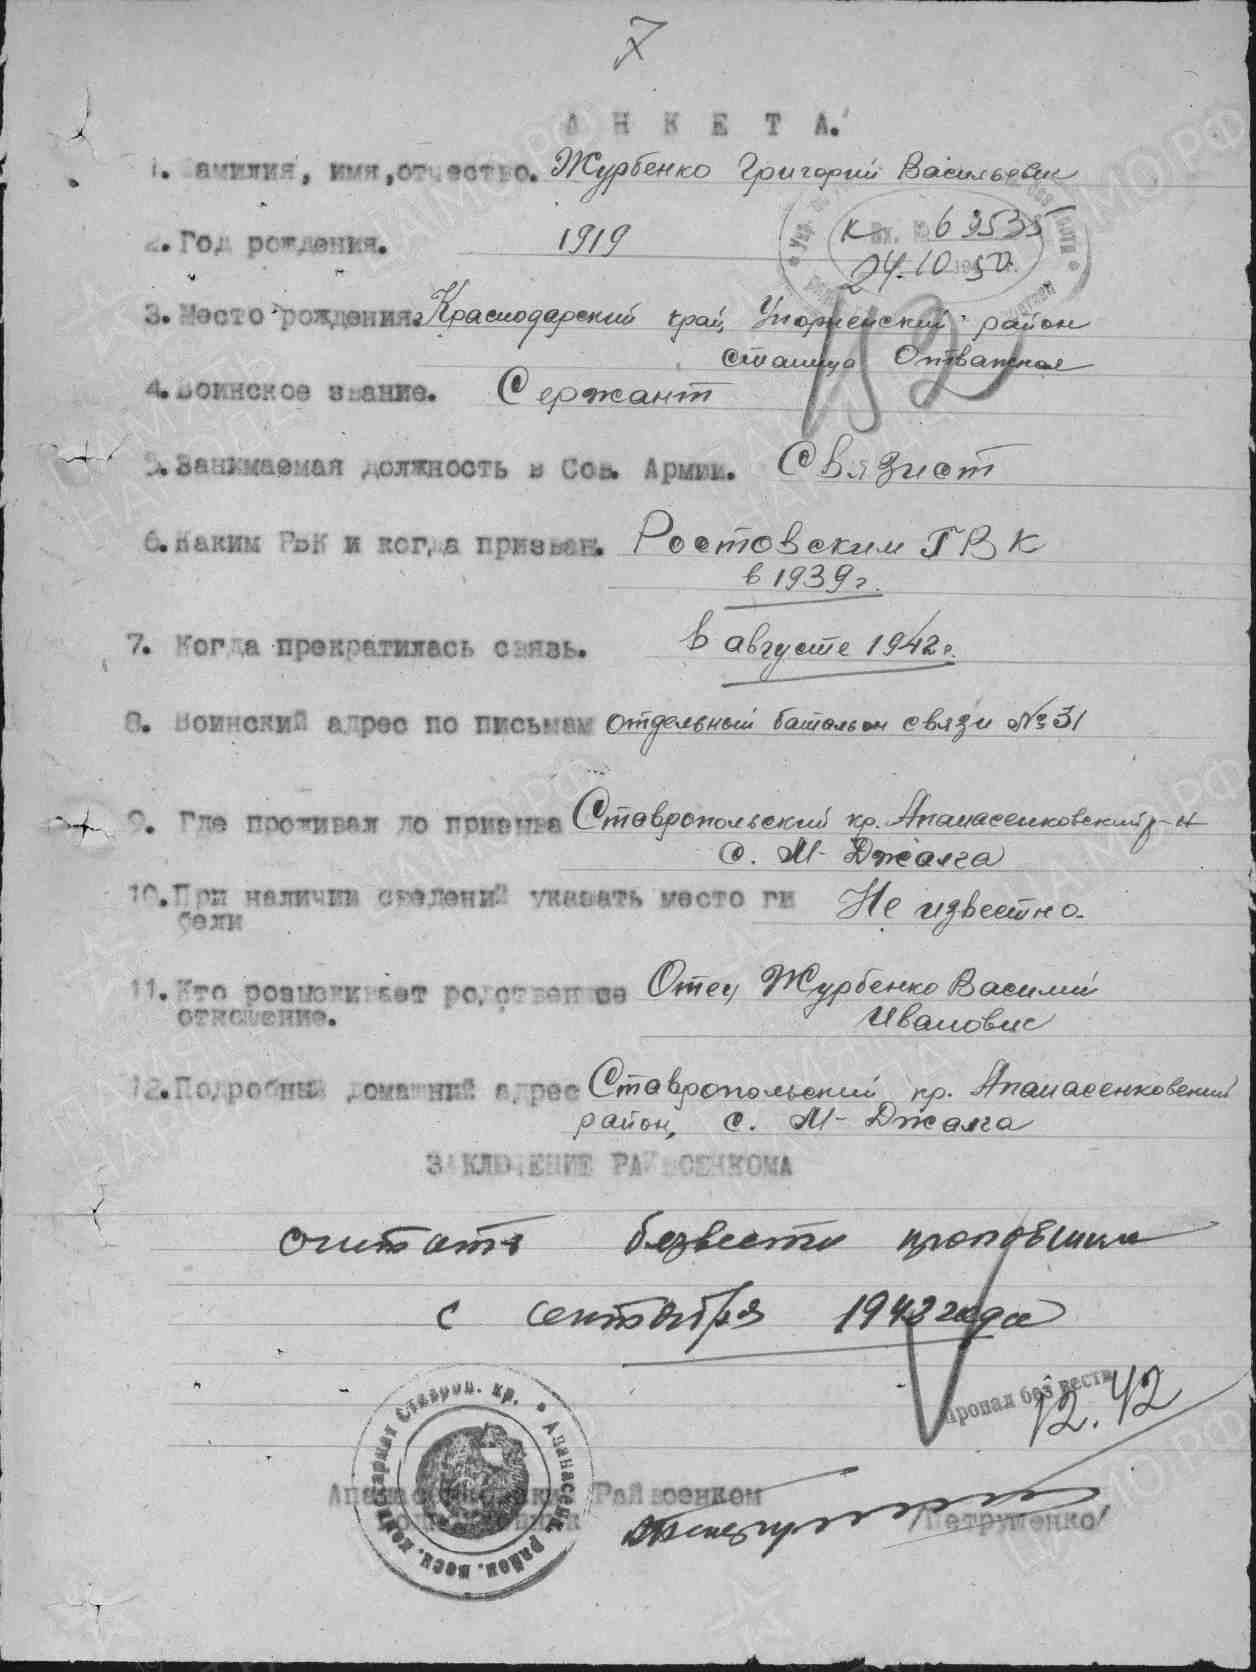 7
А Н К Е Т А.
1. Фамилия, имя, отчество. Журбенко Григорий Васильевич
2. Год рождения. 1919
К Вх. № 63535
24.10 1950
3. Место рождения. Краснодарский край, Упорненский район
станица Отважная
4. Воинское звание. Сержант
5. Занимаемая должность в Сов. Армии. Связист
6. Каким РВК и когда призван. Ростовским ГВК
в 1939 г.
7. Когда прекратилась связь. в августе 1942 г.
8. Воинский адрес по письмам отдельный батальон связи № 31
9. Где проживал до призыва Ставропольский кр. Апанасенковский р-н
с. М-Джалга
10. При наличии сведений указать место ги Не известно.
бели
11. Кто розыскивает родственное Отец Журбенко Василий
отношение. Иванович
12. Подробный домашний адрес Ставропольский кр. Апанасенковский
район, с. М-Джалга
ЗАКЛЮЧЕНИЕ РАЙВОЕНКОМА
считать безвести пропавшим
с сентября 1943 года
пропал без вести
12.42
Апанасенковский Райвоенком
/Петрушенко/
Апанасенк. район. воен. комиссариат Ставроп. кр.